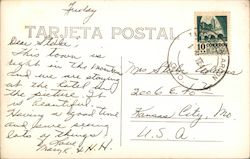 Friday
TARJETA POSTAL
Dear
This town is
right in the mountains
and we are staying
at the hotel in
the picture. It
is beautiful.
Having a good time
and have seen
lots of things
Love
H.H.
10
CORREOS
Mrs.
2006 E.
Kansas City, Mo.
U.S.A.